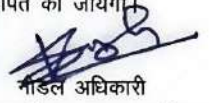 पित की जायेगी।
नोडल अधिकारी